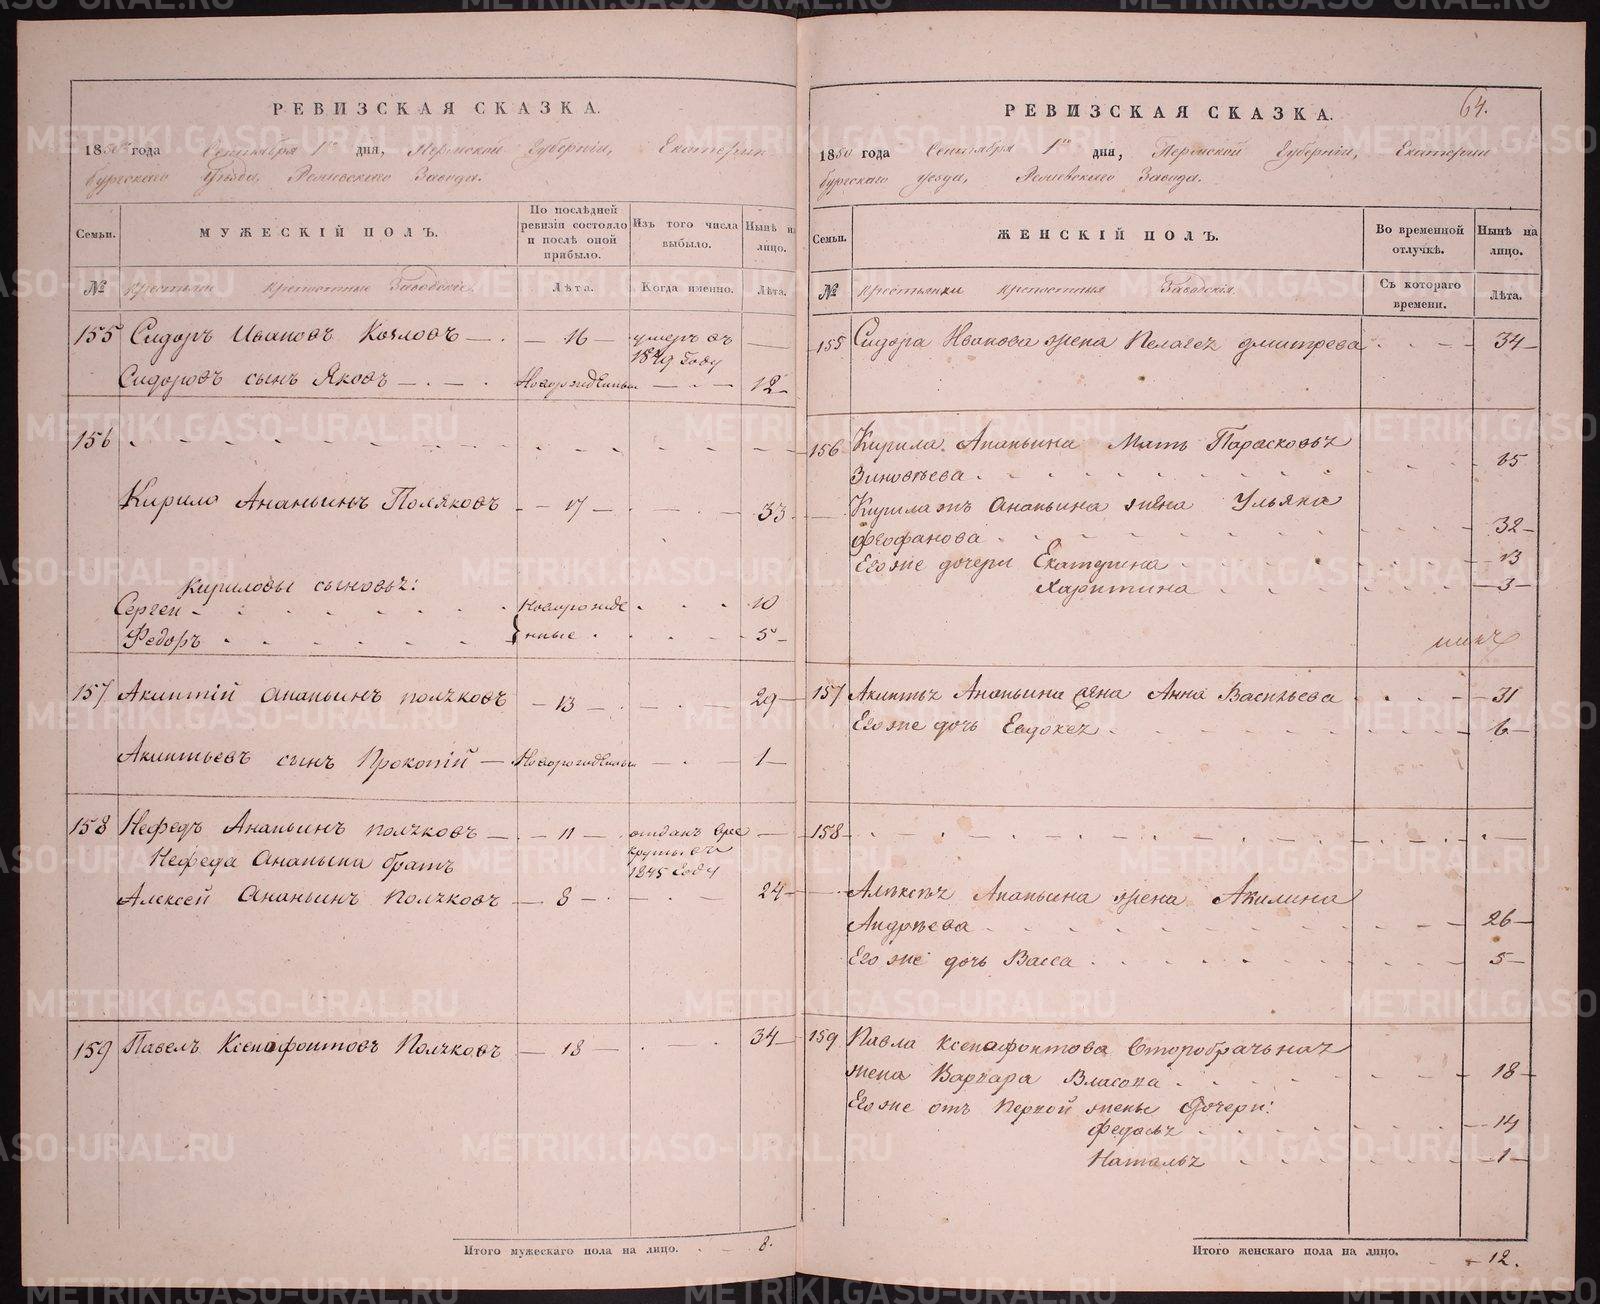 РЕВИЗСКАЯ СКАЗКА.
1850 года Сентября 1го дня, Пермской Губерніи, Екатерин
бургскаго Уѣзда, Режевскаго Завода.
Семьи. МУЖЕСКІЙ ПОЛЪ. По послѣдней ревизіи состояло и послѣ оной прибыло. Изъ того числа выбыло. Нынѣ на лицо.
№ Крестьяне крепостные Заводскіе. Лѣта. Когда именно. Лѣта.
155 Сидоръ Ивановъ Козловъ — 16 — умеръ въ 1849 году —
Сидоровъ сынъ Яковъ — Новорожденный — 12
156
Кирило Ананьинъ Поляковъ — 17 — 33
Кириловы сыновья:
Сергеи новорожде 10
Федоръ нные 5
157 Акинтій Ананьинъ поляковъ — 13 — 29
Акинтьевъ сынъ Прокопій — Новорожденный — 1
158 Нефедъ Ананьинъ поляковъ — 11 — отданъ вре круты въ 1845 году —
Нефеда Ананьина братъ
Алексей Ананьинъ Поляковъ — 8 — 24
159 Павелъ Ксенофонтовъ Поляковъ — 18 — 34
Итого мужескаго пола на лицо. 8.
64.
РЕВИЗСКАЯ СКАЗКА.
1850 года Сентября 1го дня, Пермской Губерніи, Екатерин
бургскаго уезда, Режевскаго Завода.
Семьи. ЖЕНСКІЙ ПОЛЪ. Во временной отлучкѣ. Нынѣ на лицо.
№ крестьянки крепостныя Заводскія. Съ котораго времени. Лѣта.
155 Сидора Иванова жена Пелагея дмитрева 34
156 Кирила Ананьина Мать Парасковья
Зиновьева 65
Кирила жъ Ананьина жена Ульяна
Феофанова 32
Его же дочери Екатерина 13
Харитина 3
157 Акинтья Ананьина жена Анна Васильева 31
Его же дочь Евдокея 6
158
Алексея Ананьина жена Акилина
Андреева 26
Его же дочь Васса 5
159 Павла Ксенофонтова Второбрачьная
жена Варвара Власова 18
Его же отъ Первой жены Дочери:
Федосья 14
Наталья 1
Итого женскаго пола на лицо. 12.
METRIKI.GASO-URAL.RU